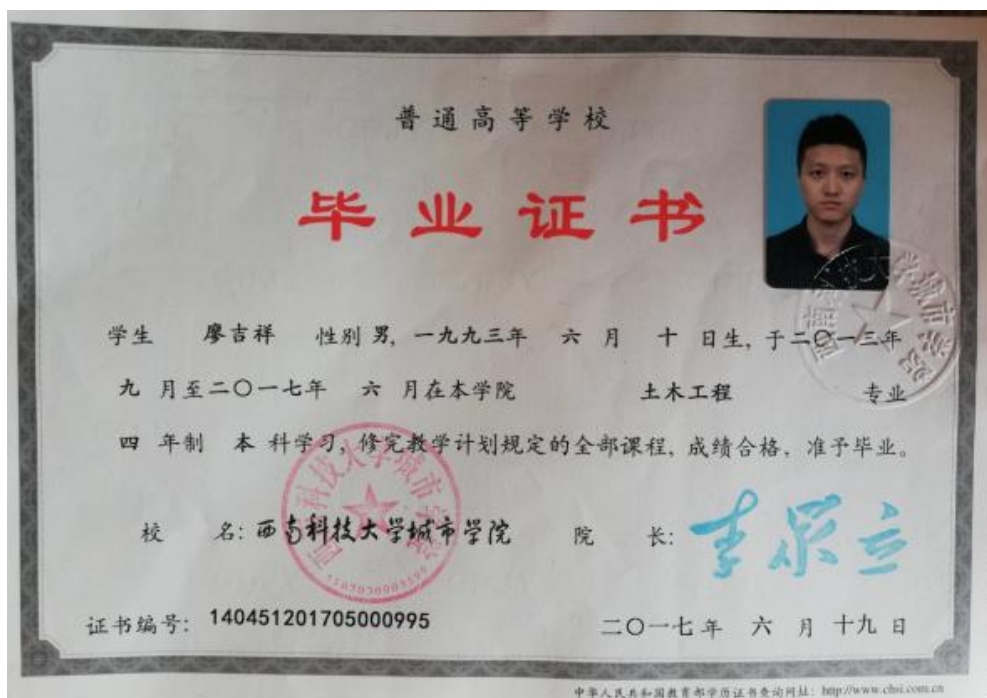 普通高等学校
毕业证书
学生 廖吉祥 性别 男, 一九九三年 六 月 十 日生, 于二〇一三年
九 月至二〇一七年 六 月在本学院 土木工程 专业
四 年制 本 科学习, 修完教学计划规定的全部课程, 成绩合格, 准予毕业。
校 名: 西南科技大学城市学院 院 长:
证书编号: 140451201705000995 二〇一七年 六 月 十九 日
中华人民共和国教育部学历证书查询网址: http://www.chsi.com.cn